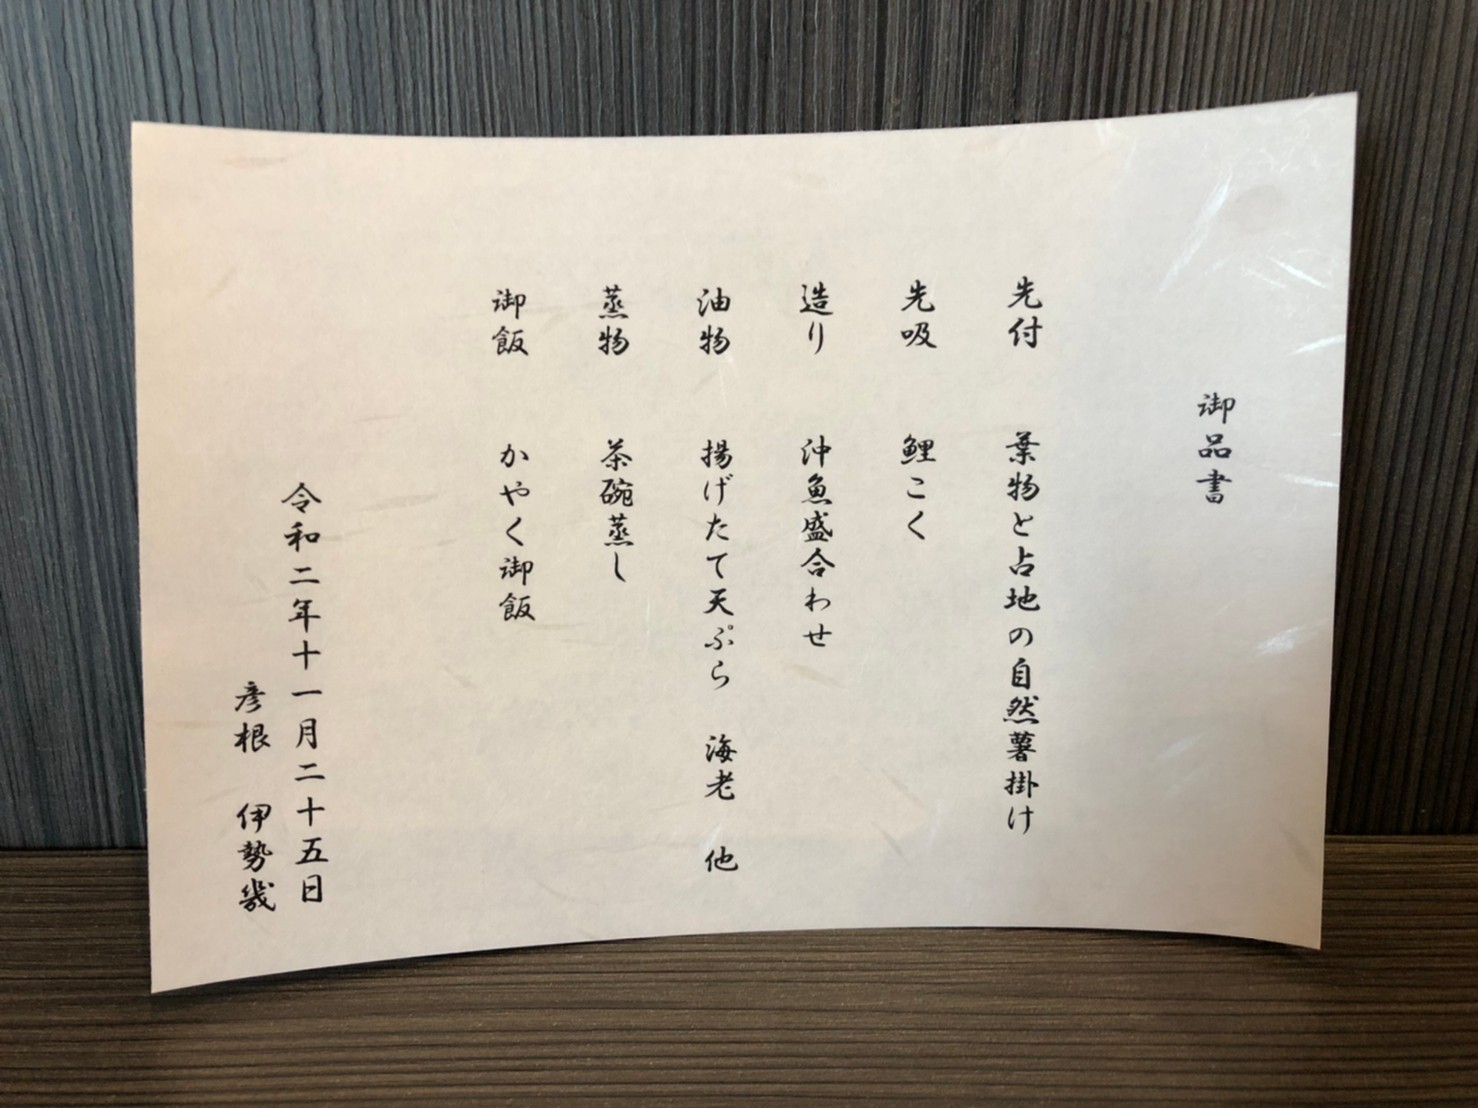 御品書
先付　葉物と占地の自然薯掛け
先吸　鯉こく
造り　沖魚盛合わせ
油物　揚げたて天ぷら　海老　他
蒸物　茶碗蒸し
御飯　かやく御飯
令和二年十一月二十五日
彦根　伊勢幾